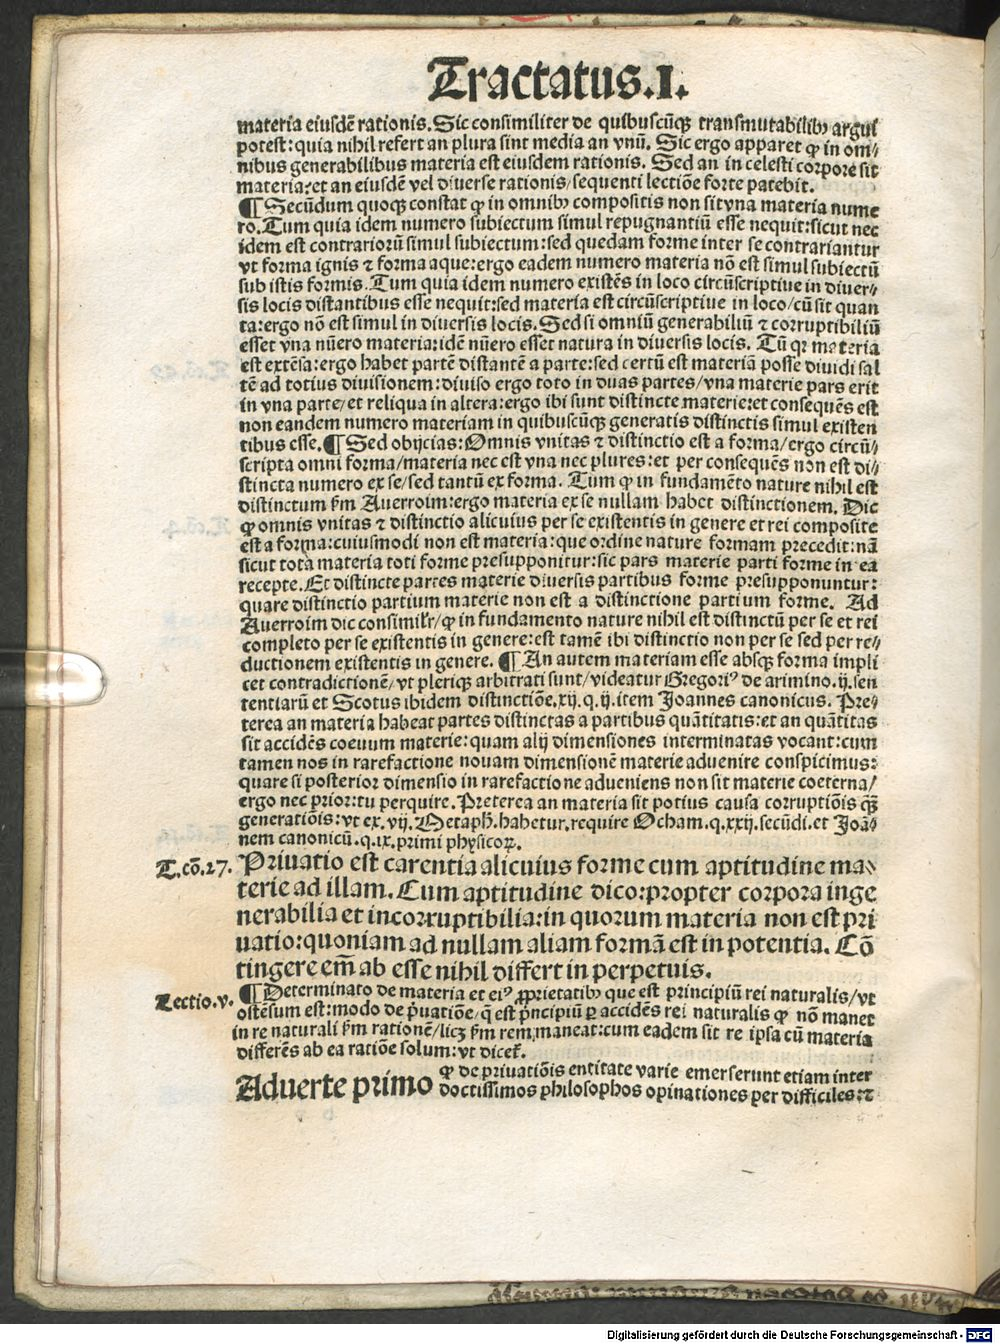 Tractatus.I.
materia eiusdē rationis. Sic consimiliter de quibuscūqꝫ transmutabilibꝰ argui
potest: quia nihil refert an plura sint media an vnū. Sic ergo apparet ꝙ in om⸗
nibus generabilibus materia est eiusdem rationis. Sed an in celesti corpore sit
materia: et an eiusdē vel diuerse rationis/ sequenti lectiōe forte patebit.
¶ Secūdum quoqꝫ constat ꝙ in omnibꝰ compositis non sit vna materia nume
ro. Tum quia idem numero subiectum simul repugnantiū esse nequit: sicut nec
idem est contrariorū simul subiectum: sed quedam forme inter se contrariantur
vt forma ignis ⁊ forma aque: ergo eadem numero materia nō est simul subiectū
sub istis formis. Tum quia idem numero existēs in loco circūscriptiue in diuer⸗
sis locis distantibus esse nequit: sed materia est circūscriptiue in loco/ cū sit quan
ta: ergo nō est simul in diuersis locis. Sed si omniū generabiliū ⁊ corruptibiliū
esset vna nūero materia: idē nūero esset natura in diuersis locis. Tū qꝛ materia
est extēsa: ergo habet partē distantē a parte: sed certū est materiā posse diuidi sal
tē ad totius diuisionem: diuiso ergo toto in duas partes/ vna materie pars erit
in vna parte/ et reliqua in altera: ergo ibi sunt distincte materie: et consequēs est
non eandem numero materiam in quibuscūqꝫ generatis distinctis simul existen
tibus esse. ¶ Sed obijcias: Omnis vnitas ⁊ distinctio est a forma/ ergo circū⸗
scripta omni forma/ materia nec est vna nec plures: et per consequēs non est di⸗
stincta numero ex se/ sed tantū ex forma. Tum ꝙ in fundamēto nature nihil est
distinctum ẜm Auerroim: ergo materia ex se nullam habet distinctionem. Dic
ꝙ omnis vnitas ⁊ distinctio alicuius per se existentis in genere et rei composite
est a forma: cuiusmodi non est materia: que ordine nature formam precedit: nā
sicut tota materia toti forme presupponitur: sic pars materie parti forme in ea
recepte. Et distincte partes materie diuersis partibus forme presupponuntur:
quare distinctio partium materie non est a distinctione partium forme. Ad
Auerroim dic consimilr̄/ ꝙ in fundamento nature nihil est distinctū per se et rei
completo per se existentis in genere: est tamē ibi distinctio non per se sed per re⸗
ductionem existentis in genere. ¶ An autem materiam esse absqꝫ forma impli
cet contradictionē/ vt pleriqꝫ arbitrati sunt/ videatur Gregoriꝰ de arimino .ij. sen
tentiarū et Scotus ibidem distinctiōe .xij. q. ij. item Joannes canonicus. Pre⸗
terea an materia habeat partes distinctas a partibus quātitatis: et an quātitas
sit accidēs coeuum materie: quam alij dimensiones interminatas vocant: cum
tamen nos in rarefactione nouam dimensionē materie aduenire conspicimus:
quare si posterior dimensio in rarefactione adueniens non sit materie coeterna/
ergo nec prior: tu perquire. Preterea an materia sit potius causa corruptiōis qꝫ̄
generatiōis: vt ex .vij. Metaph̄. habetur. require Ocham. q. xxij. secūdi. et Joā⸗
nem canonicū. q. ix. primi physicoꝝ.
T. cō. 27. Priuatio est carentia alicuius forme cum aptitudine ma⸗
terie ad illam. Cum aptitudine dico: propter corpora inge
nerabilia et incorruptibilia: in quorum materia non est pri
uatio: quoniam ad nullam aliam formā est in potentia. Cō
tingere em̄ ab esse nihil differt in perpetuis.
Lectio. v. ¶ Determinato de materia et eiꝰ ꝓprietatibꝰ que est principiū rei naturalis/ vt
ostēsum est: modo de p̄uatiōe/ q̄ est p̄ncipiū ꝑ accidēs rei naturalis ꝙ nō manet
in re naturali ẜm rationē/ licꝫ ẜm rem maneat: cum eadem sit re ipsa cū materia
differēs ab ea ratiōe solum: vt dicet̄.
Aduerte primo ꝙ de priuatiōis entitate varie emerserunt etiam inter
doctissimos philosophos opinationes per difficiles: ⁊
Digitalisierung gefördert durch die Deutsche Forschungsgemeinschaft - DFG